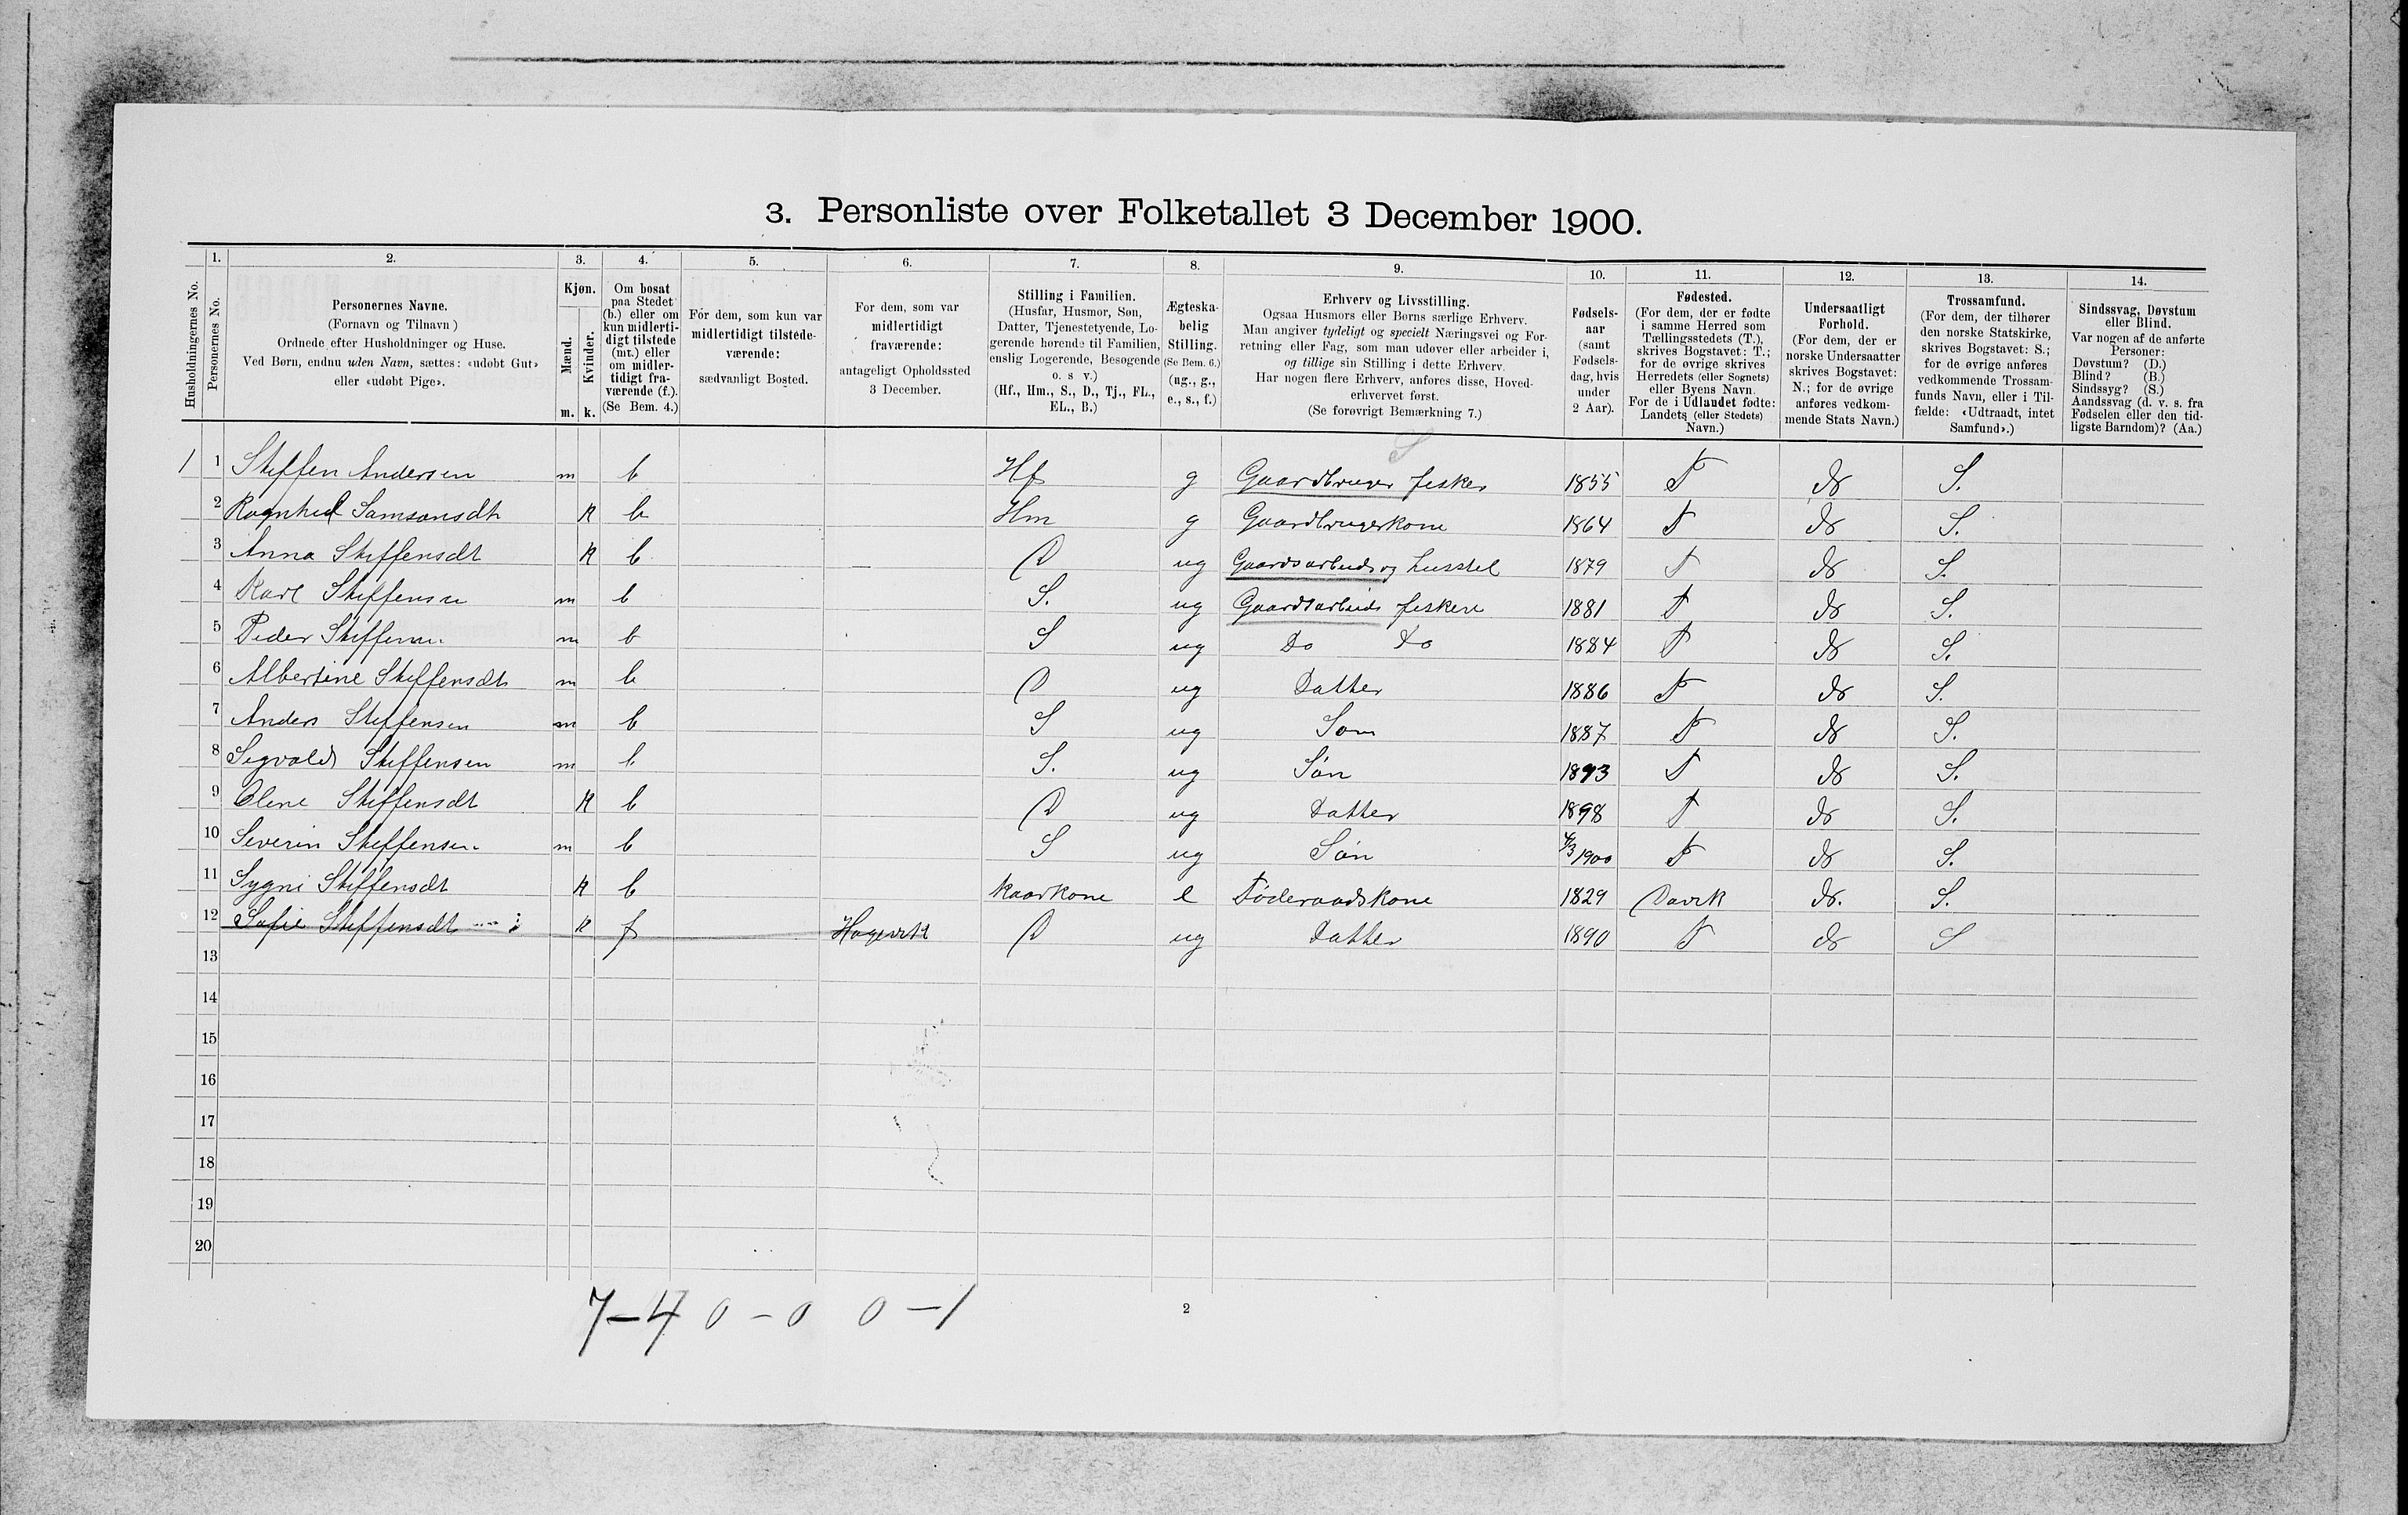 3. Personliste over Folketallet 3 December 1900.
1. 2. 3. 4. 5. 6. 7. 8. 9. 10. 11. 12. 13. 14.
Husholdningernes No.
Personernes No.
Personernes Navne.
(Fornavn og Tilnavn)
Ordnede efter Husholdninger og Huse.
Ved Børn, endnu uden Navn, sættes: «udøbt Gut»
eller «udøbt Pige».
Kjøn.
Mænd.
Kvinder.
m. k.
Om bosat
paa Stedet
(b.) eller om
kun midlerti-
digt tilstede
(mt.) eller
om midler-
tidigt fra-
værende (f.).
(Se Bem. 4.)
For dem, som kun var
midlertidigt tilstede-
værende:
sædvanligt Bosted.
For dem, som var
midlertidigt
fraværende:
antageligt Opholdssted
3 December.
Stilling i Familien.
(Husfar, Husmor, Søn,
Datter, Tjenestetyende, Lo-
gerende hørende til Familien,
enslig Logerende, Besøgende
o. s v.)
(Hf., Hm., S., D., Tj., FL.,
EL., B.)
Ægteska-
belig
Stilling.
(Se Bem. 6.)
(ug., g.,
e., s., f.)
Erhverv og Livsstilling.
Ogsaa Husmors eller Børns særlige Erhverv.
Man angiver tydeligt og specielt Næringsvei og For-
retning eller Fag, som man udøver eller arbeider i,
og tillige sin Stilling i dette Erhverv.
Har nogen flere Erhverv, anføres disse, Hoved-
erhvervet først.
(Se forøvrigt Bemærkning 7.)
Fødsels-
aar
(samt
Fødsels-
dag, hvis
under
2 Aar).
Fødested.
(For dem, der er fødte
i samme Herred som
Tællingsstedets (T.),
skrives Bogstavet: T.;
for de øvrige skrives
Herredets (eller Sognets)
eller Byens Navn.
For de i Udlandet fødte:
Landets (eller Stedets)
Navn.)
Undersaatligt
Forhold.
(For dem, der er
norske Undersaatter
skrives Bogstavet:
N.; for de øvrige
anføres vedkom-
mende Stats Navn.)
Trossamfund.
(For dem, der tilhører
den norske Statskirke,
skrives Bogstavet: S.;
for de øvrige anføres
vedkommende Trossam-
funds Navn, eller i Til-
fælde: «Udtraadt, intet
Samfund».)
Sindssvag, Døvstum
eller Blind.
Var nogen af de anførte
Personer:
Døvstum? (D.)
Blind? (B.)
Sindssyg? (S.)
Aandssvag (d. v. s. fra
Fødselen eller den tid-
ligste Barndom)? (Aa.)
S
1 1 Steffen Andersen m b Hf g Gaardbruger fisker 1855 T N S.
2 Ragnhed Samsonsdt k b Hm g Gaardbrugerkone 1864 T N S.
3 Anna Steffensdt k b — D ug Gaardsarbeids og husstel 1879 T N S.
4 Karl Steffensen m b S. ug Gaardsarbeids fiskere 1881 T N S.
5 Peder Steffensen m b S ug Do Do 1884 T N S.
6 Albertine Steffensdt m b D ug Datter 1886 T N S.
7 Anders Steffensen m b S ug Søn 1887 T N S.
8 Segvald Steffensen m b S. ug Søn 1893 T N S.
9 Oline Steffensdt k b D ug Datter 1898 T N S.
10 Severin Steffensen m b S ug Søn 4/3 1900 T N S.
11 Sygni Steffensdt k b kaarkone e Føderaadskone 1829 Davik N. S.
12 Sofie Steffensdt k f D ug Datter 1890 T N S
13
14
15
16
17
18
19
20
7–4 0–0 0–1
2